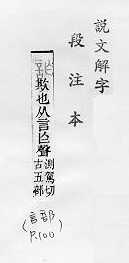 說文解字
段注本
欺也从言乍聲
側駕切
古五部
(言部
P.100)